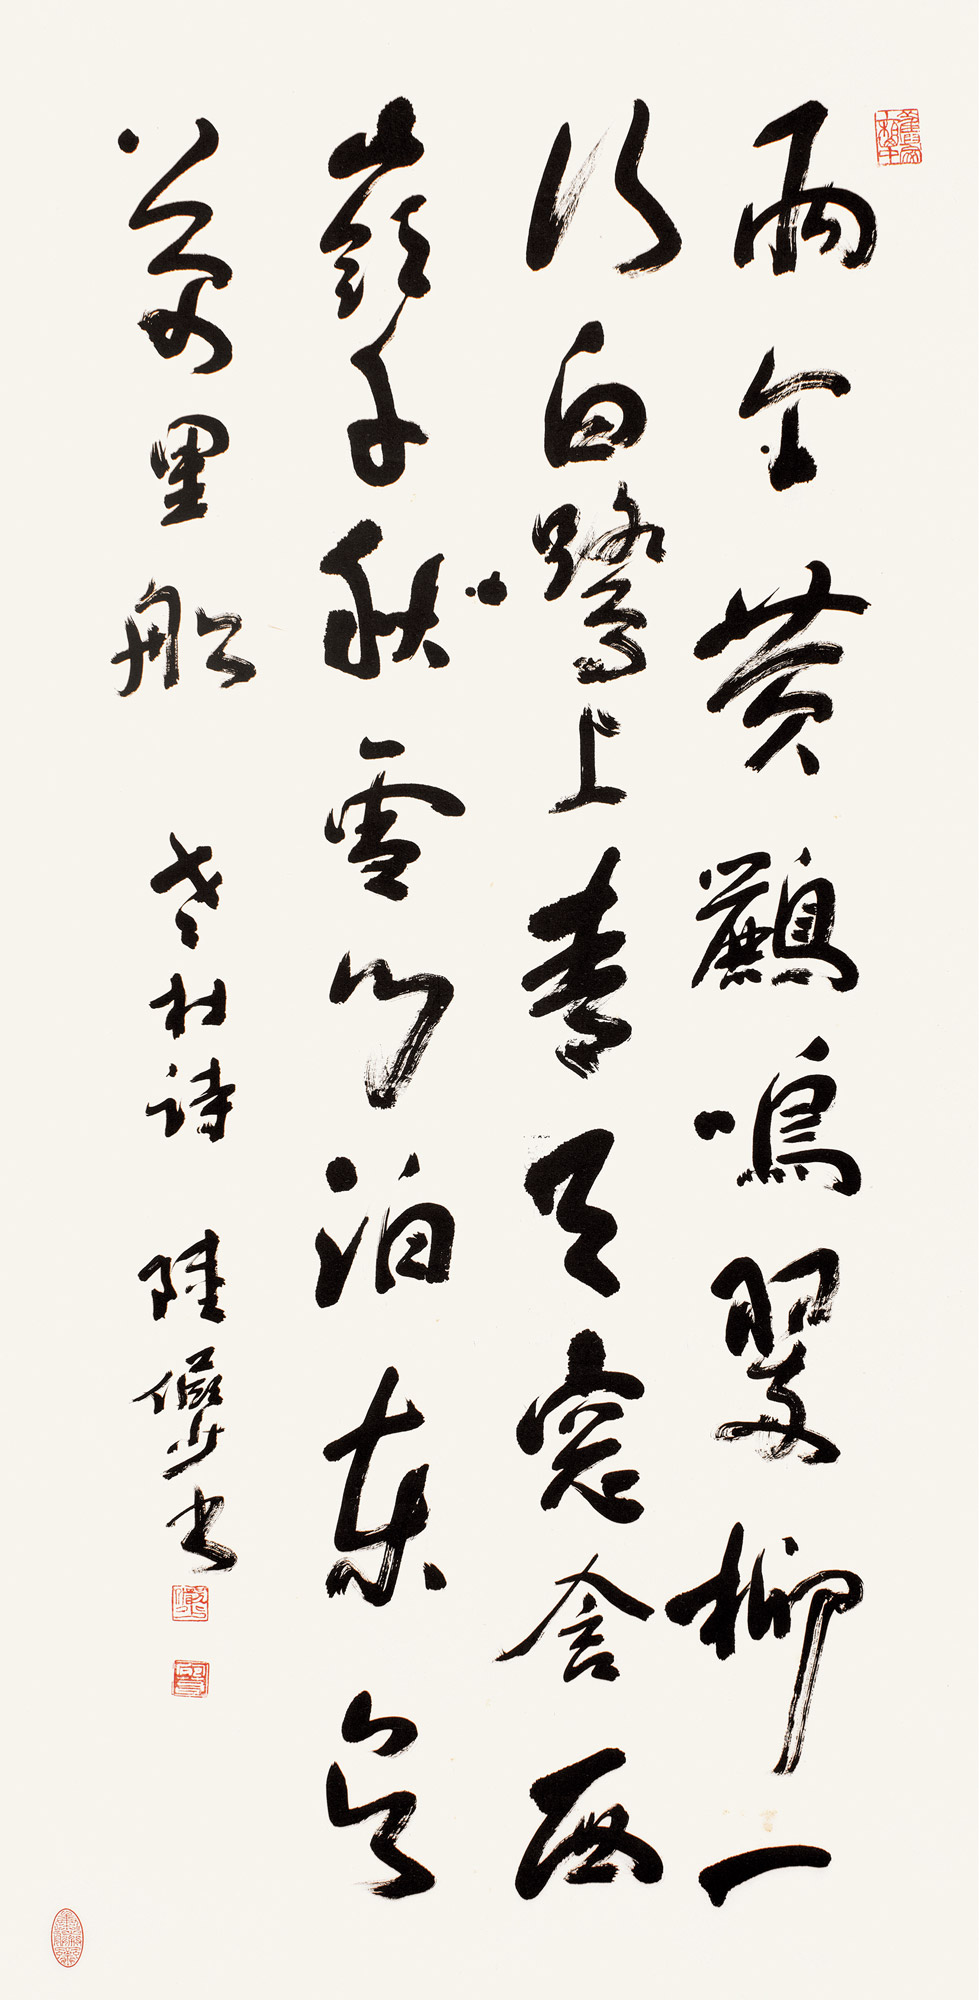 兩个黃鸝鳴翠柳一
行白鷺上青天窓含西
嶺千秋雪門泊東吳
萬里船 老杜詩 陸儼少書